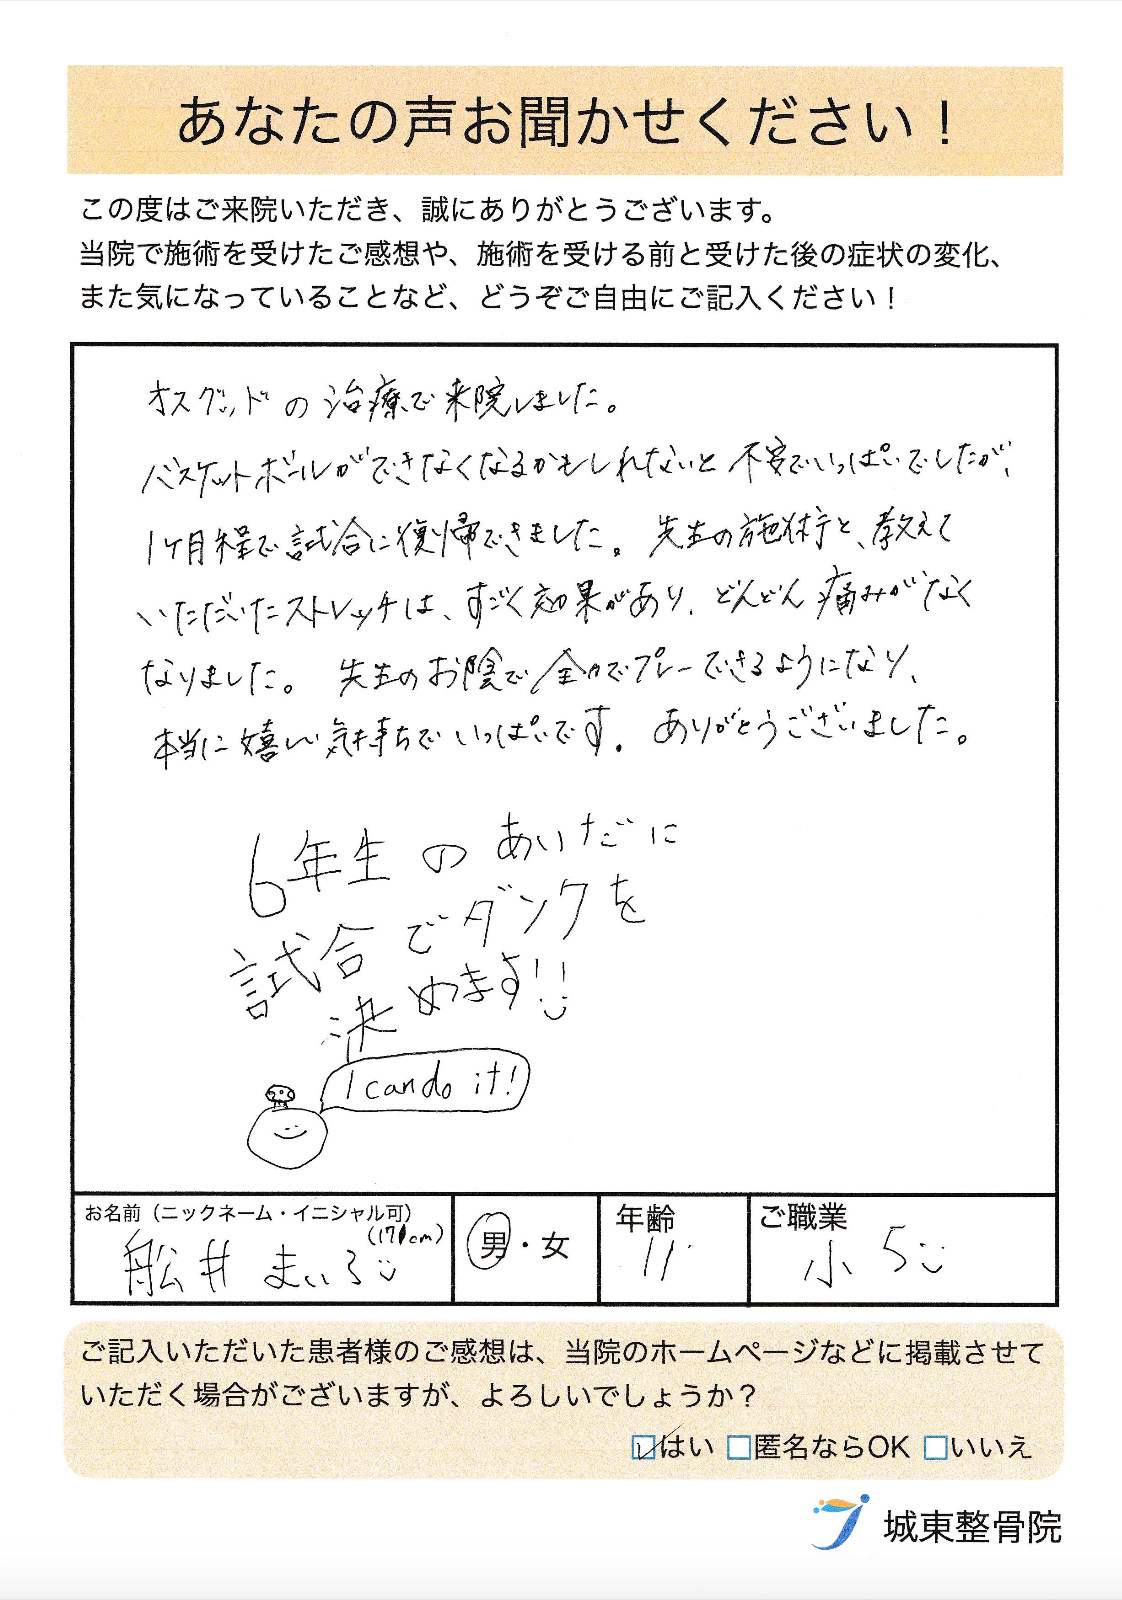 あなたの声お聞かせください！
この度はご来院いただき、誠にありがとうございます。
当院で施術を受けたご感想や、施術を受ける前と受けた後の症状の変化、
また気になっていることなど、どうぞご自由にご記入ください！
オスグッドの治療で来院しました。
バスケットボールができなくなるかもしれないと不安でいっぱいでしたが、
1ヶ月程で試合に復帰できました。先生の施術と、教えて
いただいたストレッチは、すごく効果があり、どんどん痛みがなく
なりました。先生のお陰で全力でプレーできるようになり、
本当に嬉しい気持ちでいっぱいです。ありがとうございました。
6年生のあいだに
試合でダンクを
決めます!!
I can do it!
お名前（ニックネーム・イニシャル可）
(171cm)
舩井 まいろ
男・女
年齢
11
ご職業
小5
ご記入いただいた患者様のご感想は、当院のホームページなどに掲載させて
いただく場合がございますが、よろしいでしょうか？
はい 匿名ならOK いいえ
城東整骨院